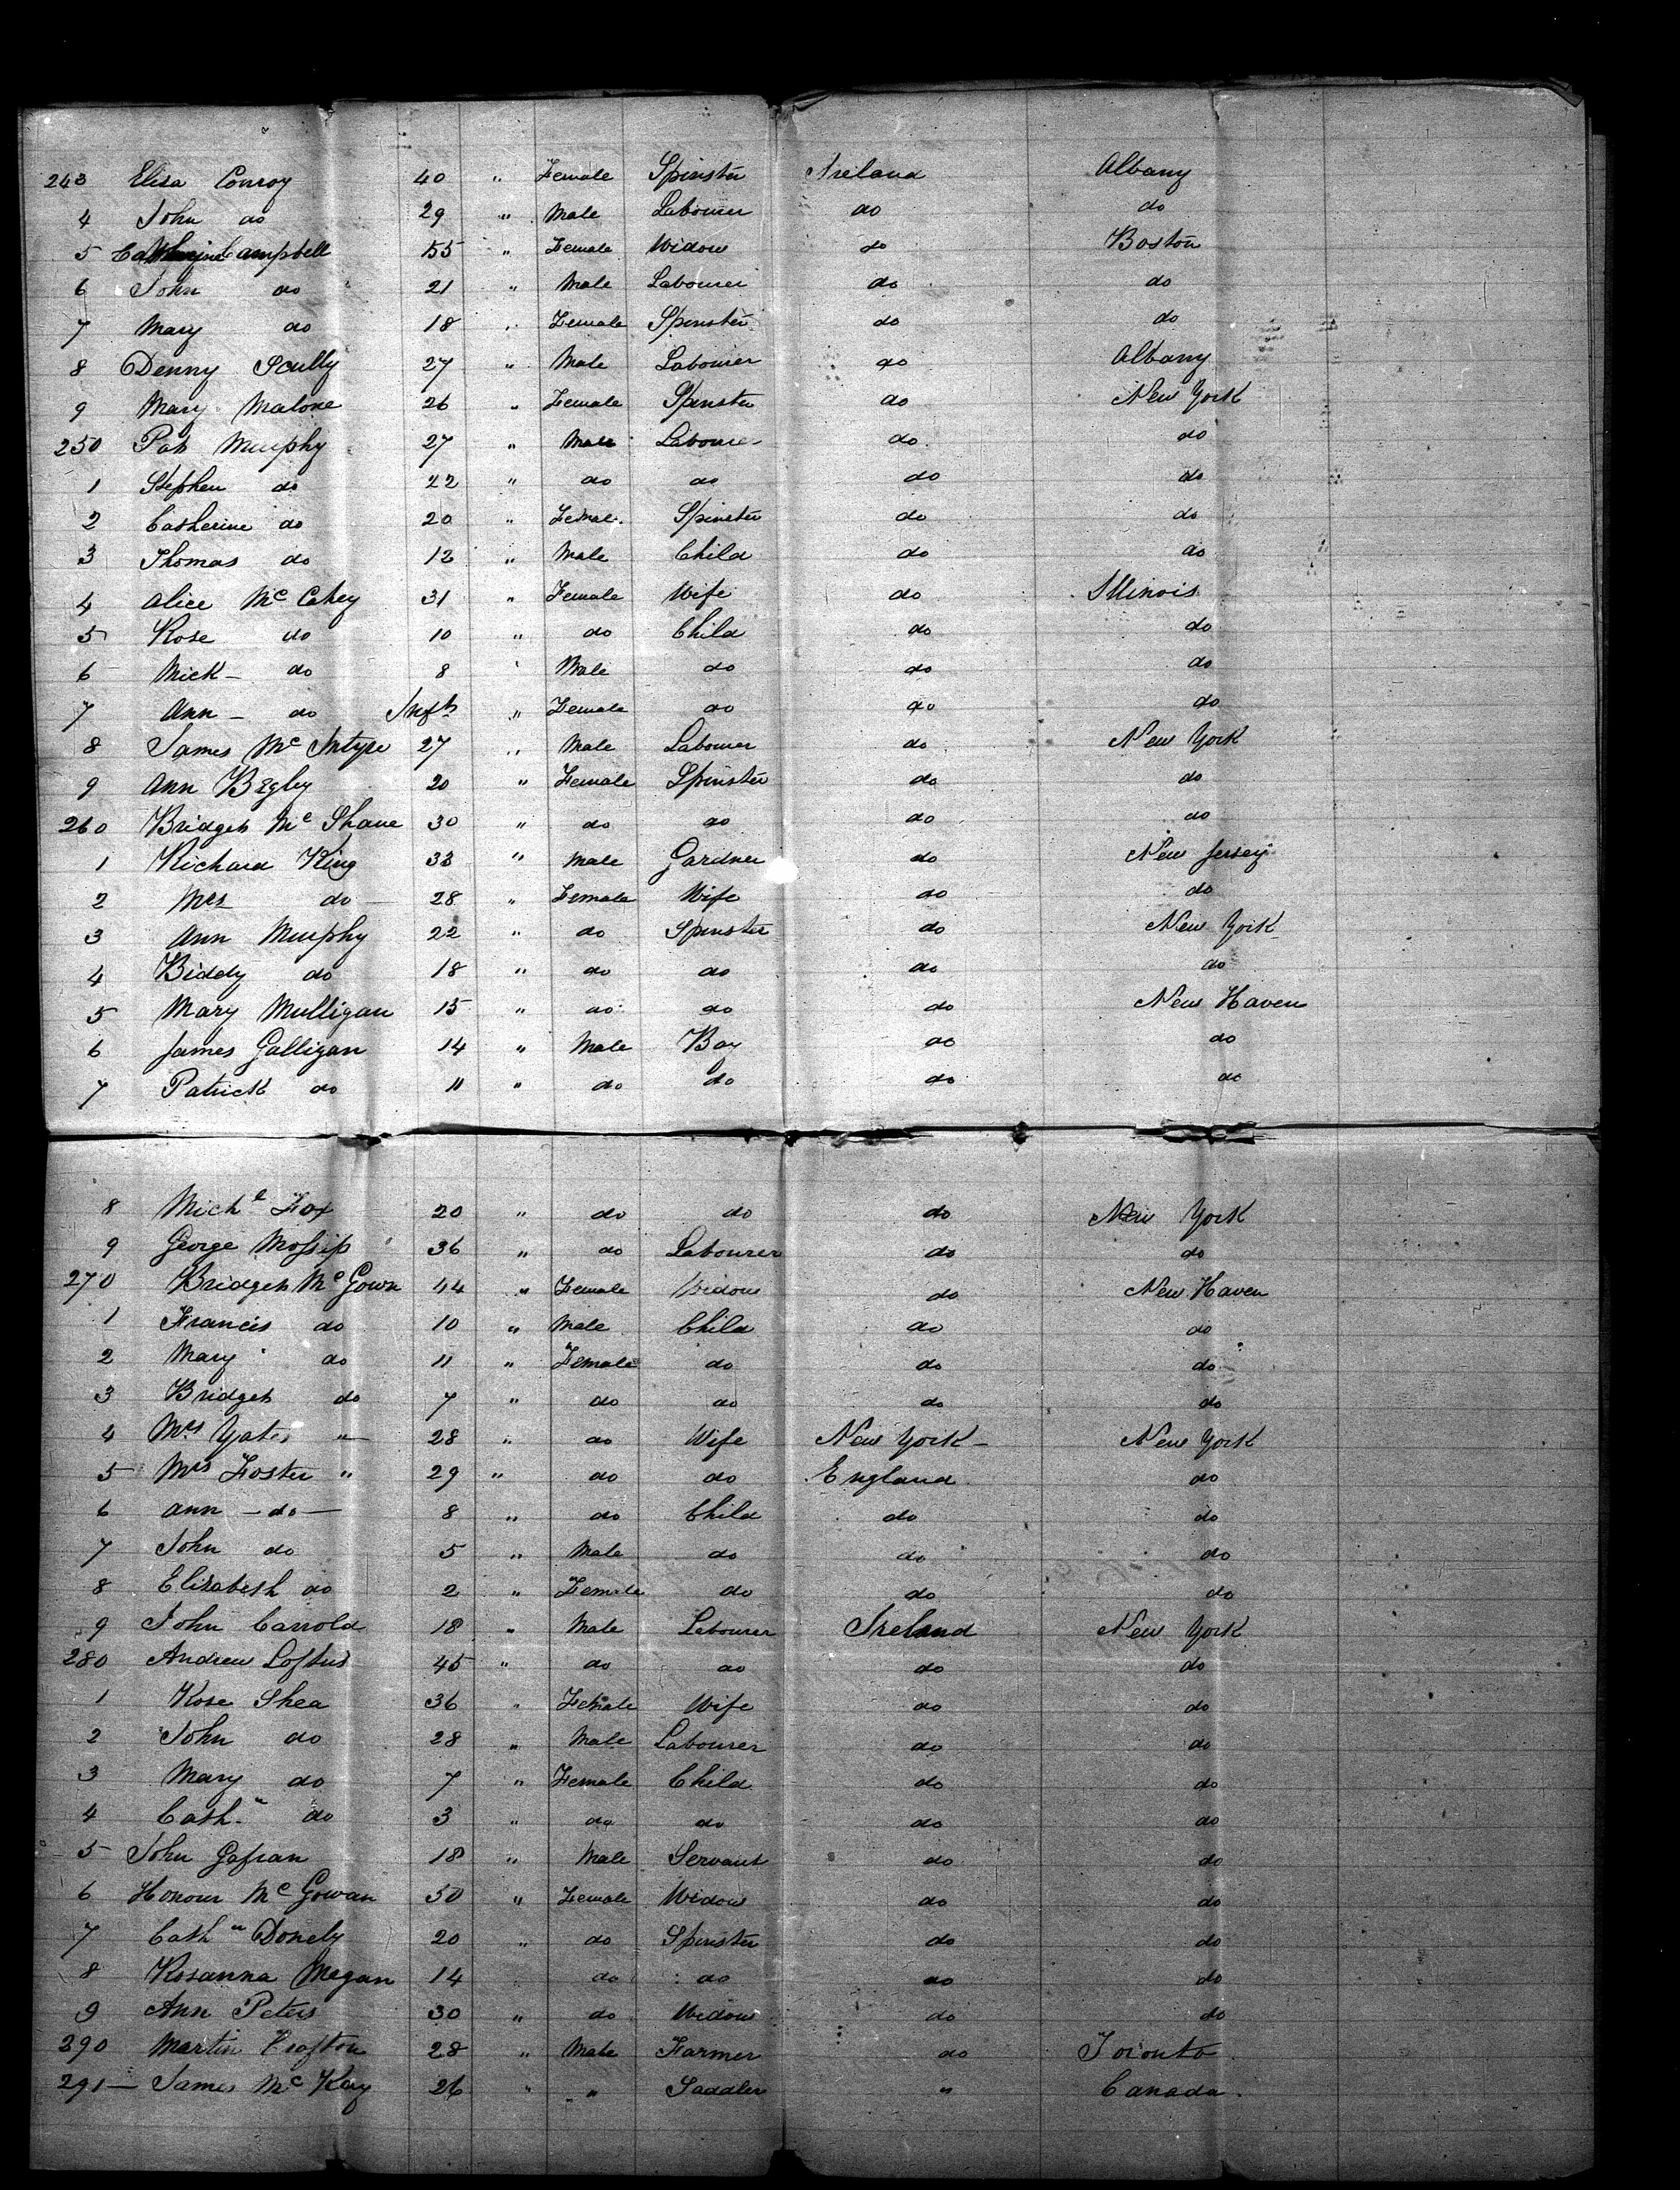 243 Elisa Conroy 40 " Female Spinster Ireland Albany
4 John do 29 " Male Labourer do do
5 Catherine Campbell 55 " Female Widow do Boston
6 John do 21 " Male Labourer do do
7 Mary do 18 " Female Spinster do do
8 Denny Scully 27 " Male Labourer do Albany
9 Mary Malone 26 " Female Spinster do New York
250 Pat Murphy 27 " Male Labourer do do
1 Stephen do 22 " do do do do
2 Catherine do 20 " Female Spinster do do
3 Thomas do 12 " Male Child do do
4 Alice Mc Cahey 31 " Female Wife do Illinois
5 Rose do 10 " do Child do do
6 Mick - do 8 " Male do do do
7 Ann - do Inft " Female do do do
8 James Mc Intyre 27 " Male Labourer do New York
9 Ann Begley 20 " Female Spinster do do
260 Bridget Mc Shane 30 " do do do do
1 Richard King 33 " Male Gardner do New Jersey
2 Mrs do 28 " Female Wife do do
3 Ann Murphy 22 " do Spinster do New York
4 Biddy do 18 " do do do do
5 Mary Mulligan 15 " do do do New Haven
6 James Galligan 14 " Male Boy do do
7 Patrick do 11 " do do do do
8 Michl Fox 20 " do do do New York
9 George Mossip 36 " do Labourer do do
270 Bridget Mc Gown 44 " Female Widow do New Haven
1 Francis do 10 " Male Child do do
2 Mary do 11 " Female do do do
3 Bridget do 7 " do do do do
4 Mrs Yates " 28 " do Wife New York - New York
5 Mrs Foster " 29 " do do England do
6 Ann - do - 8 " do Child do do
7 John do 5 " Male do do do
8 Elizabeth do 2 " Female do do do
9 John Carrold 18 " Male Labourer Ireland New York
280 Andrew Loftus 45 " do do do do
1 Rose Shea 36 " Female Wife do do
2 John do 28 " Male Labourer do do
3 Mary do 7 " Female Child do do
4 Cath " do 3 " do do do do
5 John 18 " Male Servant do do
6 Honour Mc Gowan 50 " Female Widow do do
7 Cath " Donely 20 " do Spinster do do
8 Rosanna Megan 14 " do do do do
9 Ann Peters 30 " do Widow do do
290 Martin 28 " Male Farmer do Toronto
291 - James Mc Kay 26 " " Saddler " Canada.